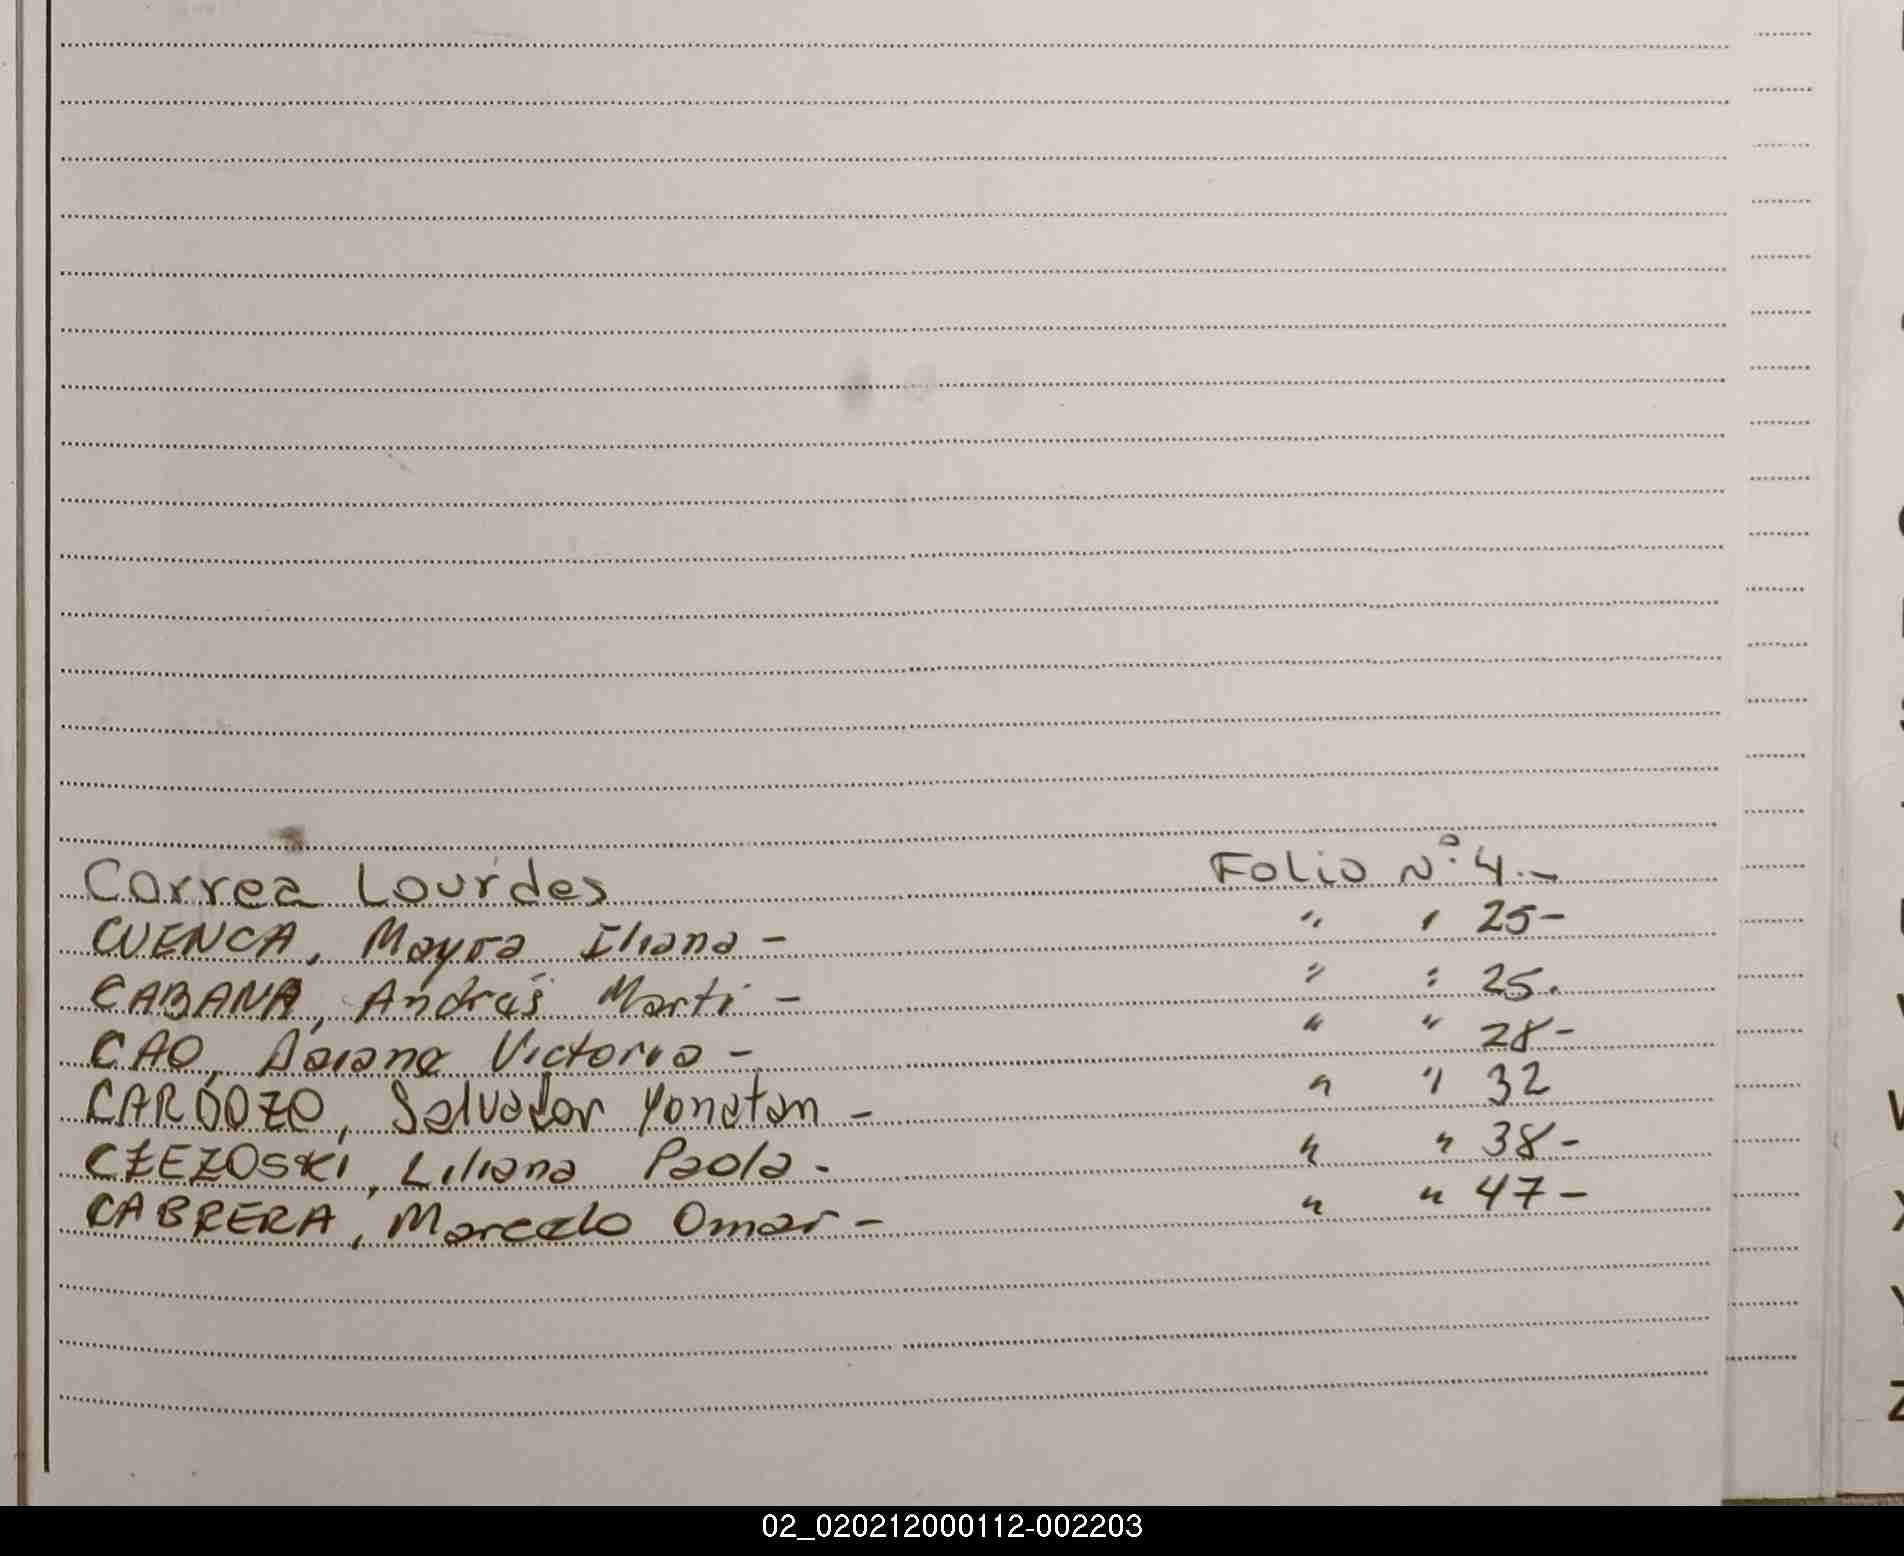 Correa Lourdes Folio Nº 4.-
CUENCA, Mayra Iliana - " " 25-
CABANA, Andrés Marti - " " 25.
CAO, Daiana Victoria - " " 28-
CARDOZO, Salvador Yonatan - " " 32
CZEZOSKI, Liliana Paola. " " 38-
CABRERA, Marcelo Omar - " " 47-
02_020212000112-002203